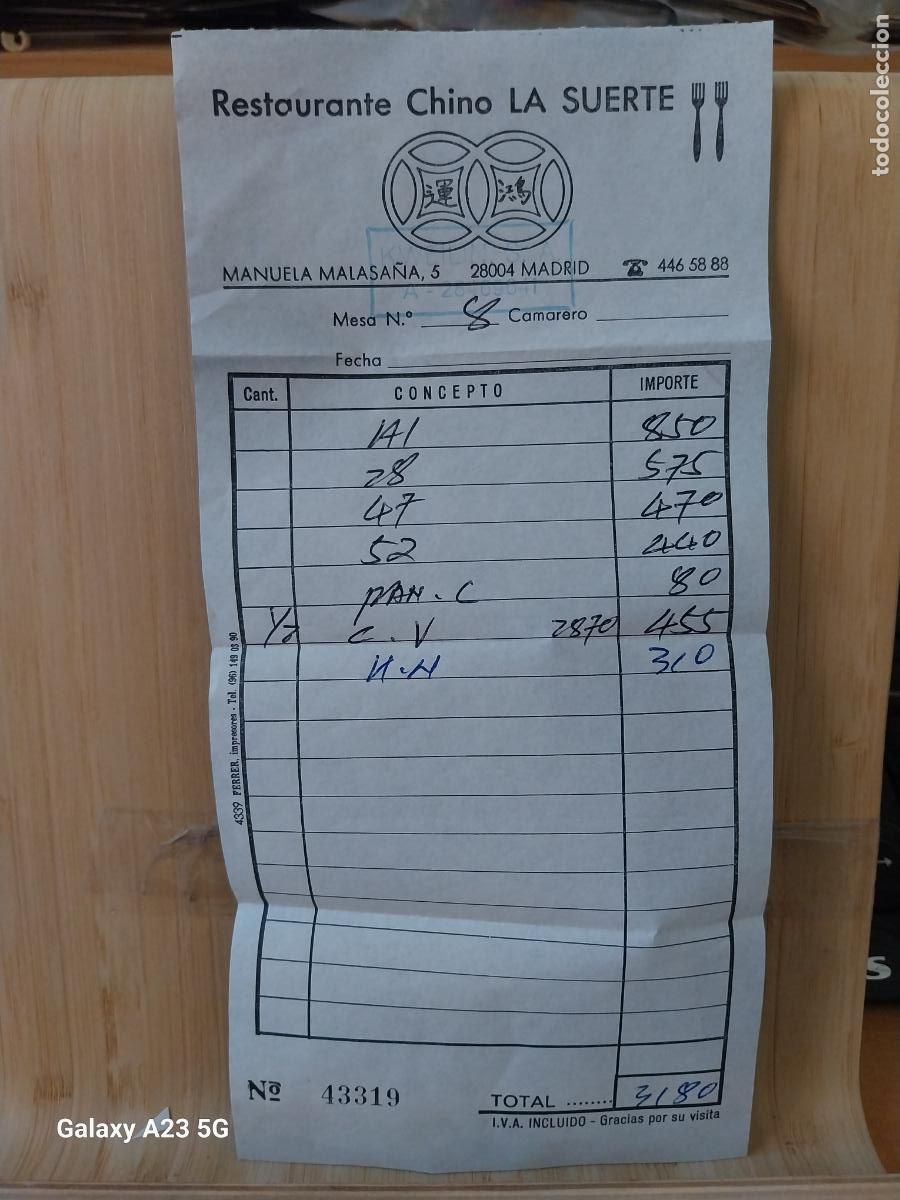 todocoleccion
Restaurante Chino LA SUERTE
運 鴻
MANUELA MALASAÑA, 5 28004 MADRID ☎ 446 58 88
Mesa N.º 8 Camarero
Fecha
Cant. CONCEPTO IMPORTE
141 850
28 575
47 470
52 440
PAN . C 80
1/2 C . V 2870 455
H.H 310
4339 FERRER, impresores - Tel. (96) 149 03 90
Nº 43319
TOTAL ........ 3180
I.V.A. INCLUIDO - Gracias por su visita
Galaxy A23 5G
S